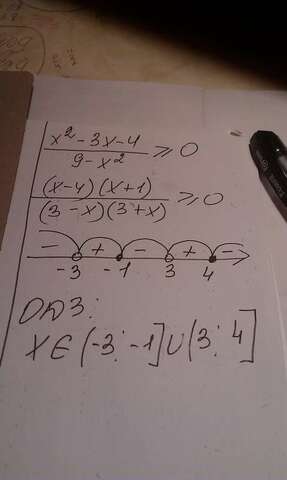 x² - 3x - 4 / 9 - x² ≥ 0
(x-4)(x+1) / (3-x)(3+x) ≥ 0
- + - + -
-3 -1 3 4
ОДЗ:
XЄ(-3; -1]U(3; 4]